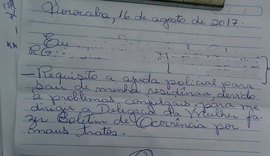 Sorocaba, 16 de agosto de 2017.
Eu
RG:
- Requisito a ajuda policial para
sair de minha residência, devido
a problemas conjugais, para me
dirigir a Delegacia da Mulher fa-
zer Boletim de Ocorrência por
maus tratos.